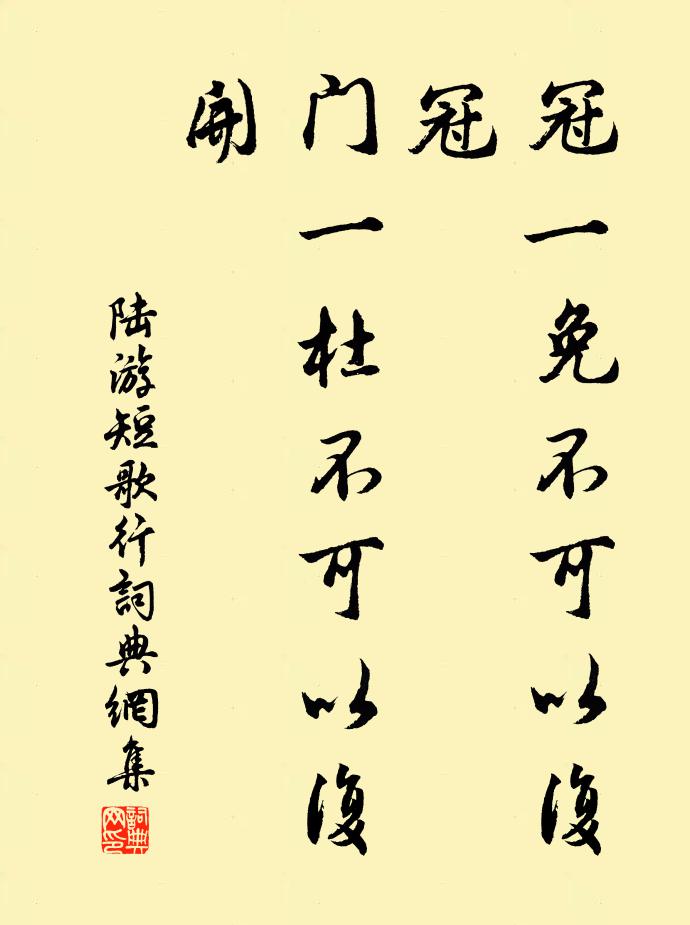 冠一免不可以復
冠
门一杜不可以復
開
陆游短歌行詞典網集
詞典
网印